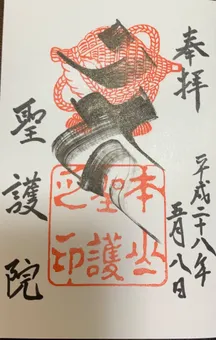 奉拝
平成二十八年
五月八日
聖護院
本山
聖護
之印